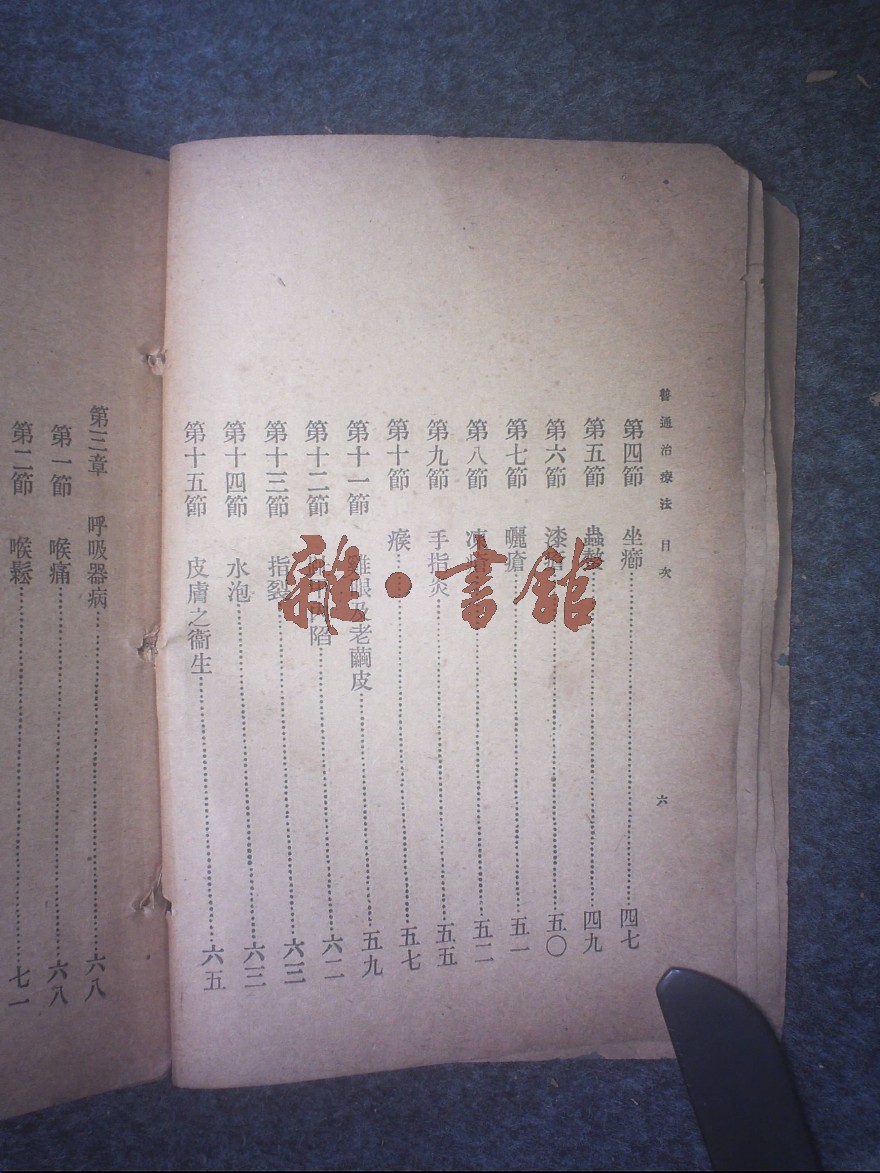 普通治療法 目次 六
第四節 坐癤 四七
第五節 蟲螫 四九
第六節 漆瘡 五〇
第七節 曬瘡 五一
第八節 凍瘡 五二
第九節 手指炎 五五
第十節 瘊 五七
第十一節 雞眼及老繭皮 五九
第十二節 內陷 六二
第十三節 指裂 六三
第十四節 水泡 六三
第十五節 皮膚之衞生 六五
第三章 呼吸器病 六八
第一節 喉痛 六八
第二節 喉鬆 七一
雜·書館